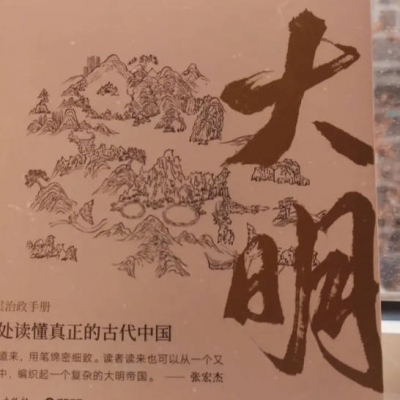 大明
层治政手册
处读懂真正的古代中国
道来，用笔绵密细致。读者读来也可以从一个又
中，编织起一个复杂的大明帝国。 —— 张宏杰